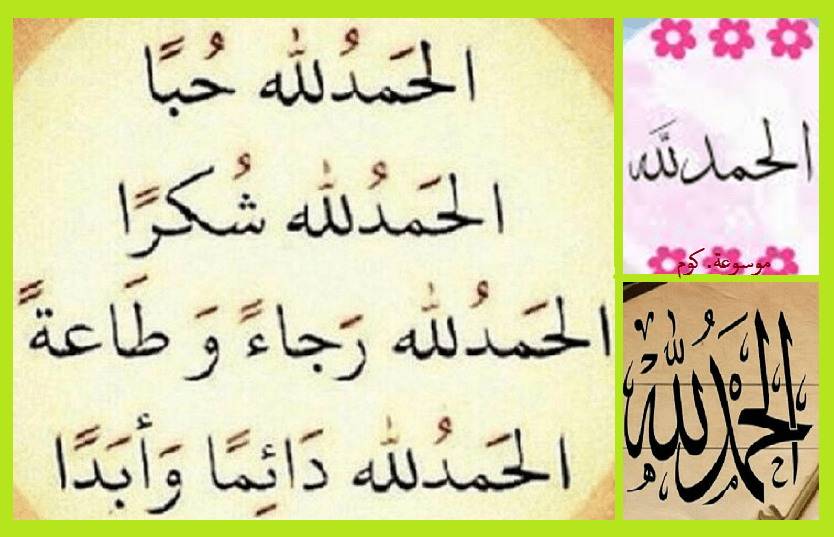 الحَمدُلله حُبًا
الحَمدُلله شُكرًا
الحَمدُلله رَجاءً وَ طَاعةً
الحَمدُلله دَائِمًا وَأبَدًا
الحمدلله
موسوعة. كوم
الحَمْدُ لِلّٰهِ